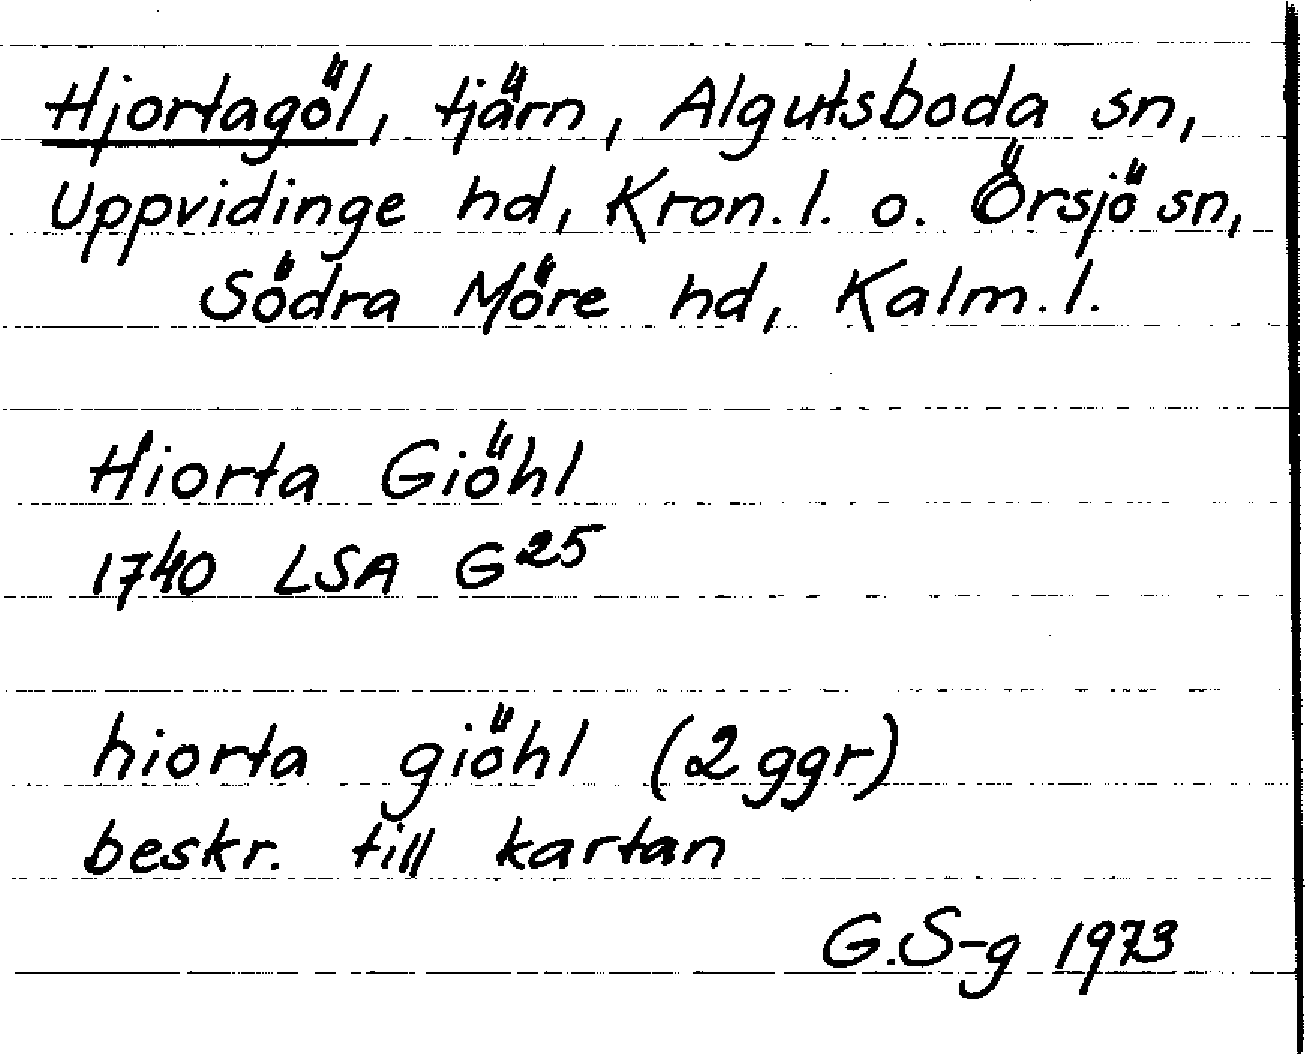 Hjortagöl, tjärn, Algutsboda sn,
Uppvidinge hd, Kron. l. o. Örsjö sn,
Södra Möre hd, Kalm. l.
Hiorta Giöhl
1740 LSA G25
hiorta giöhl (2 ggr)
beskr. till kartan
G.S-g 1973